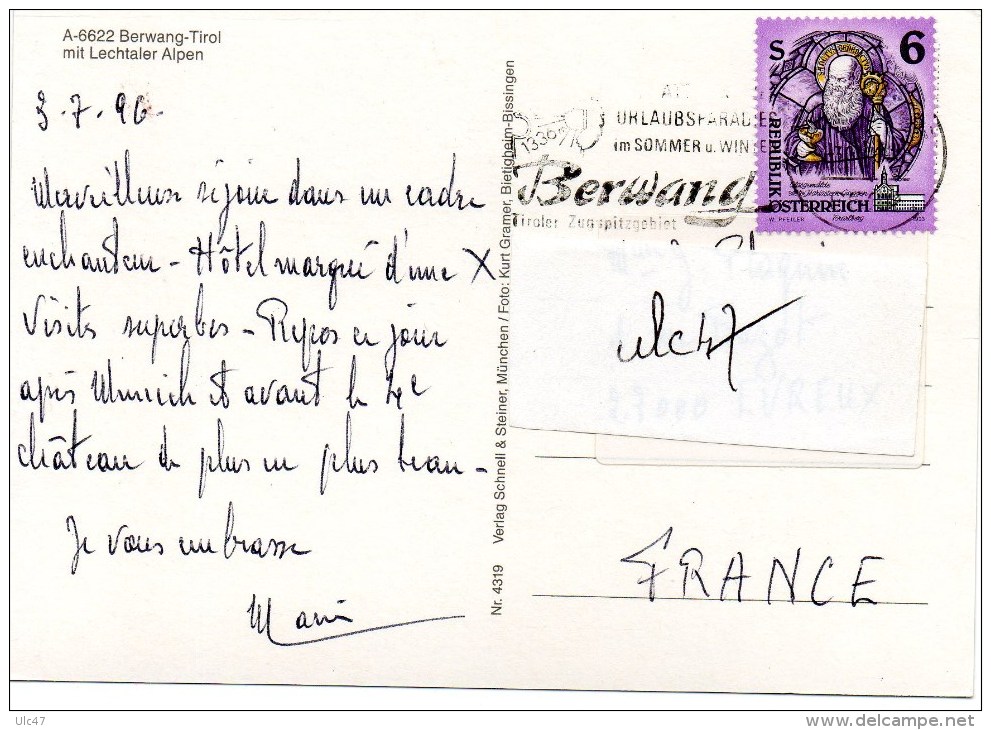 A-6622 Berwang-Tirol
mit Lechtaler Alpen
3.7.96
Merveilleux séjour dans un cadre
enchanteur - Hôtel marqué d'une X
Visites superbes - Repos ce jour
après Munich et avant le 4e
château de plus en plus beau -
Je vous embrasse
Marie
Nr. 4319 Verlag Schnell & Steiner, München / Foto: Kurt Gramer, Bietigheim-Bissingen
URLAUBSPARADIES
im SOMMER u. WINTER
Berwang
Tiroler Zugspitzgebiet
S 6
REPUBLIK
ÖSTERREICH
W. PFEILER
ulc47
27000 EVREUX
FRANCE
Ulc47
delcampe.net